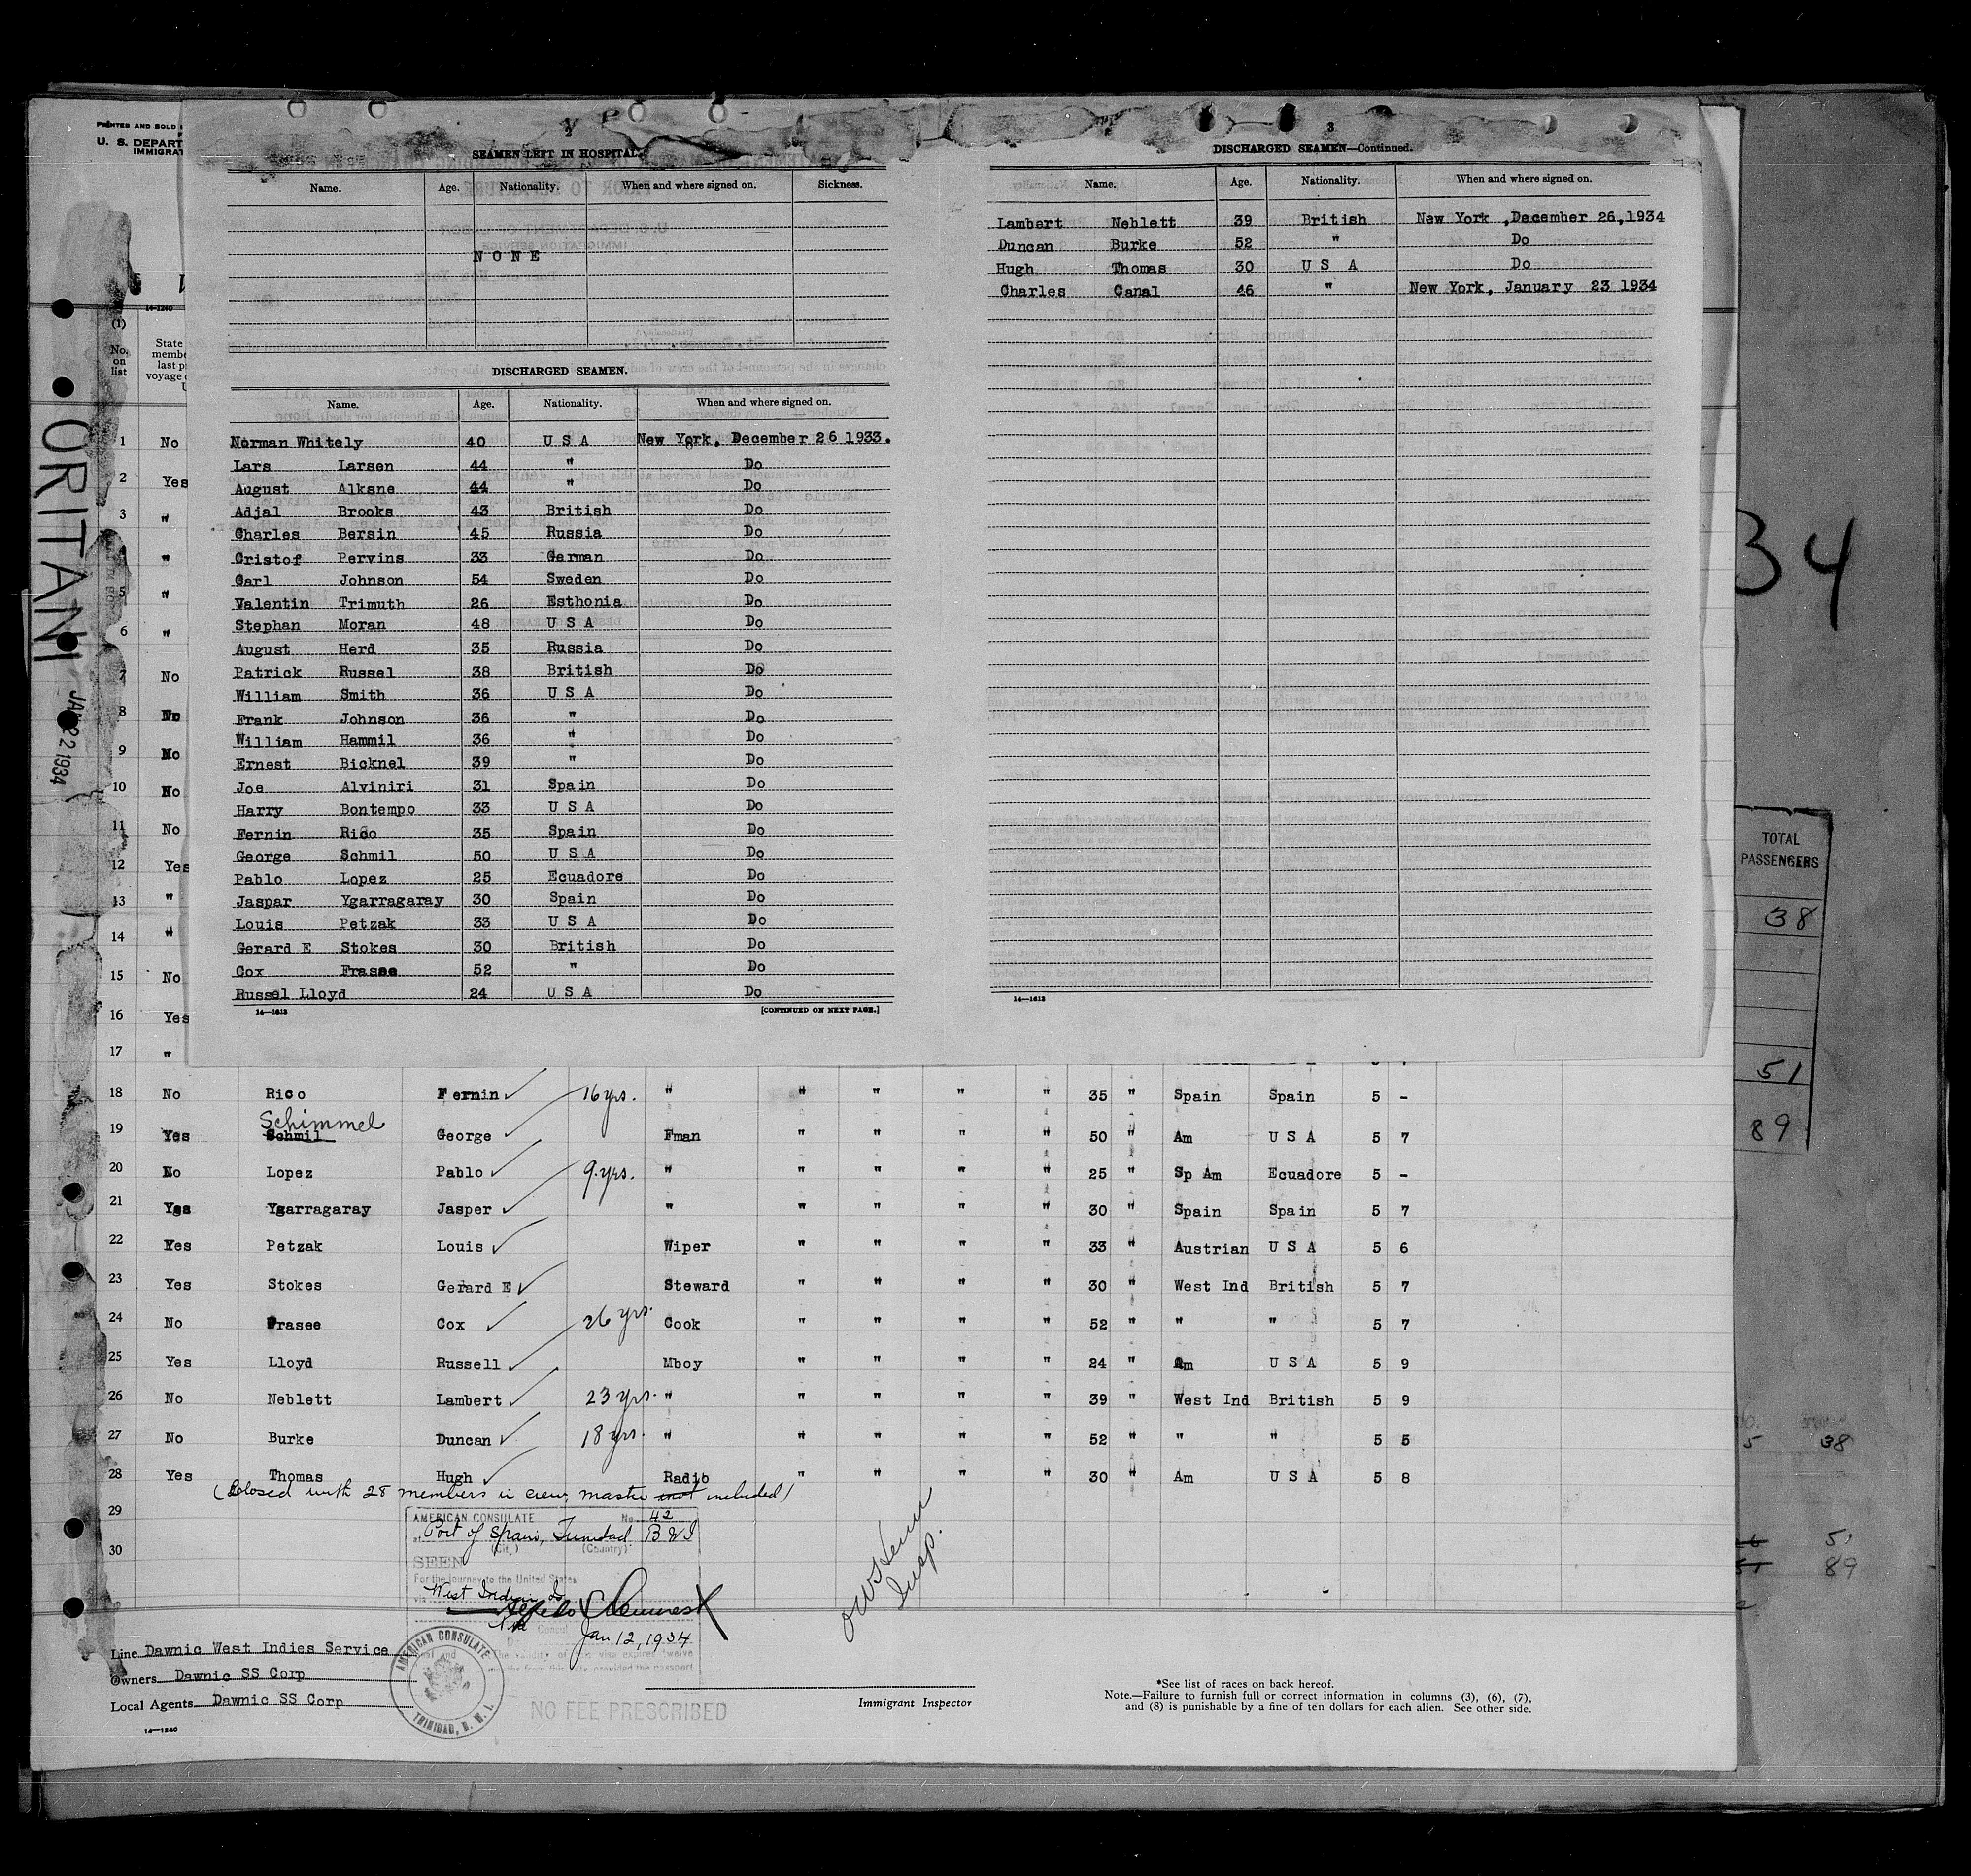 PRINTED AND SOLD
U. S. DEPART
IMMIGRAT
14-1240
(1)
No. on list
State
membe
last p
voyage
ORITANI
JAN 22 1934
SEAMEN LEFT IN HOSPITAL.
Name. Age. Nationality. When and where signed on. Sickness.
N O N E
DISCHARGED SEAMEN.
Name. Age. Nationality. When and where signed on.
Norman Whitely 40 U S A New York, December 26 1933.
Lars Larsen 44 " Do
August Alksne 44 " Do
Adjal Brooks 43 British Do
Charles Bersin 45 Russia Do
Cristof Pervins 33 German Do
Carl Johnson 54 Sweden Do
Valentin Trimuth 26 Esthonia Do
Stephan Moran 48 U S A Do
August Herd 35 Russia Do
Patrick Russel 38 British Do
William Smith 36 U S A Do
Frank Johnson 36 " Do
William Hammil 36 " Do
Ernest Bicknel 39 " Do
Joe Alviniri 31 Spain Do
Harry Bontempo 33 U S A Do
Fernin Rico 35 Spain Do
George Schmil 50 U S A Do
Pablo Lopez 25 Ecuadore Do
Jaspar Ygarragaray 30 Spain Do
Louis Petzak 33 U S A Do
Gerard E Stokes 30 British Do
Cox Frasee 52 " Do
Russel Lloyd 24 U S A Do
14—1613 [CONTINUED ON NEXT PAGE.]
3
DISCHARGED SEAMEN—Continued.
Name. Age. Nationality. When and where signed on.
Lambert Neblett 39 British New York ,December 26,1934
Duncan Burke 52 " Do
Hugh Thomas 30 U S A Do
Charles Canal 46 " New York, January 23 1934
14—1613
34
TOTAL PASSENGERS
38
51
89
1 No
2 Yes
3 "
4 "
5 "
6 "
7 No
8 No
9 No
10 No
11 No
12 Yes
13 "
14 "
15 No
16 Yes
17 "
18 No Rico Fernin 16 yrs. " " " " " 35 " Spain Spain 5 -
Schimmel
19 Yes Schmil George Fman " " " " 50 " Am U S A 5 7
20 No Lopez Pablo 9 yrs. " " " " " 25 " Sp Am Ecuadore 5 -
21 Yes Ygarragaray Jasper " " " " " 30 " Spain Spain 5 7
22 Yes Petzak Louis Wiper " " " " 33 " Austrian U S A 5 6
23 Yes Stokes Gerard E Steward " " " " 30 " West Ind British 5 7
24 No Frasee Cox 26 yrs. Cook " " " " 52 " " " 5 7
25 Yes Lloyd Russell Mboy " " " " 24 " Am U S A 5 9
26 No Neblett Lambert 23 yrs. " " " " " 39 " West Ind British 5 9
27 No Burke Duncan 18 yrs. " " " " " 52 " " " 5 5
28 Yes Thomas Hugh Radio " " " " 30 " Am U S A 5 8
(Closed with 28 members in crew, master not included)
29
30
AMERICAN CONSULATE No. 42
at Port of Spain, Trinidad B W I
(City) (Country)
SEEN
For the journey to the United States
via West Indian Is
Consul
Jan 12, 1934
AMERICAN CONSULATE
TRINIDAD, B. W. I.
NO FEE PRESCRIBED
Insp.
38
51
89
Line Dawnic West Indies Service
Owners Dawnic SS Corp
Local Agents Dawnic SS Corp
14—1240
Immigrant Inspector
*See list of races on back hereof.
Note.—Failure to furnish full or correct information in columns (3), (6), (7),
and (8) is punishable by a fine of ten dollars for each alien. See other side.